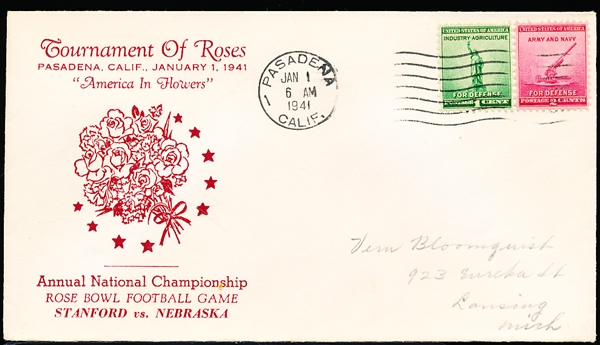 Tournament Of Roses
PASADENA, CALIF., JANUARY 1, 1941
"America In Flowers"
PASADENA
JAN 1
6 AM
1941
CALIF.
UNITED STATES OF AMERICA
INDUSTRY AGRICULTURE
FOR DEFENSE
POSTAGE 1 CENT
UNITED STATES OF AMERICA
ARMY AND NAVY
FOR DEFENSE
POSTAGE 2 CENTS
Vern Bloomquist
923 Eureka St
Lansing
Mich
Annual National Championship
ROSE BOWL FOOTBALL GAME
STANFORD vs. NEBRASKA